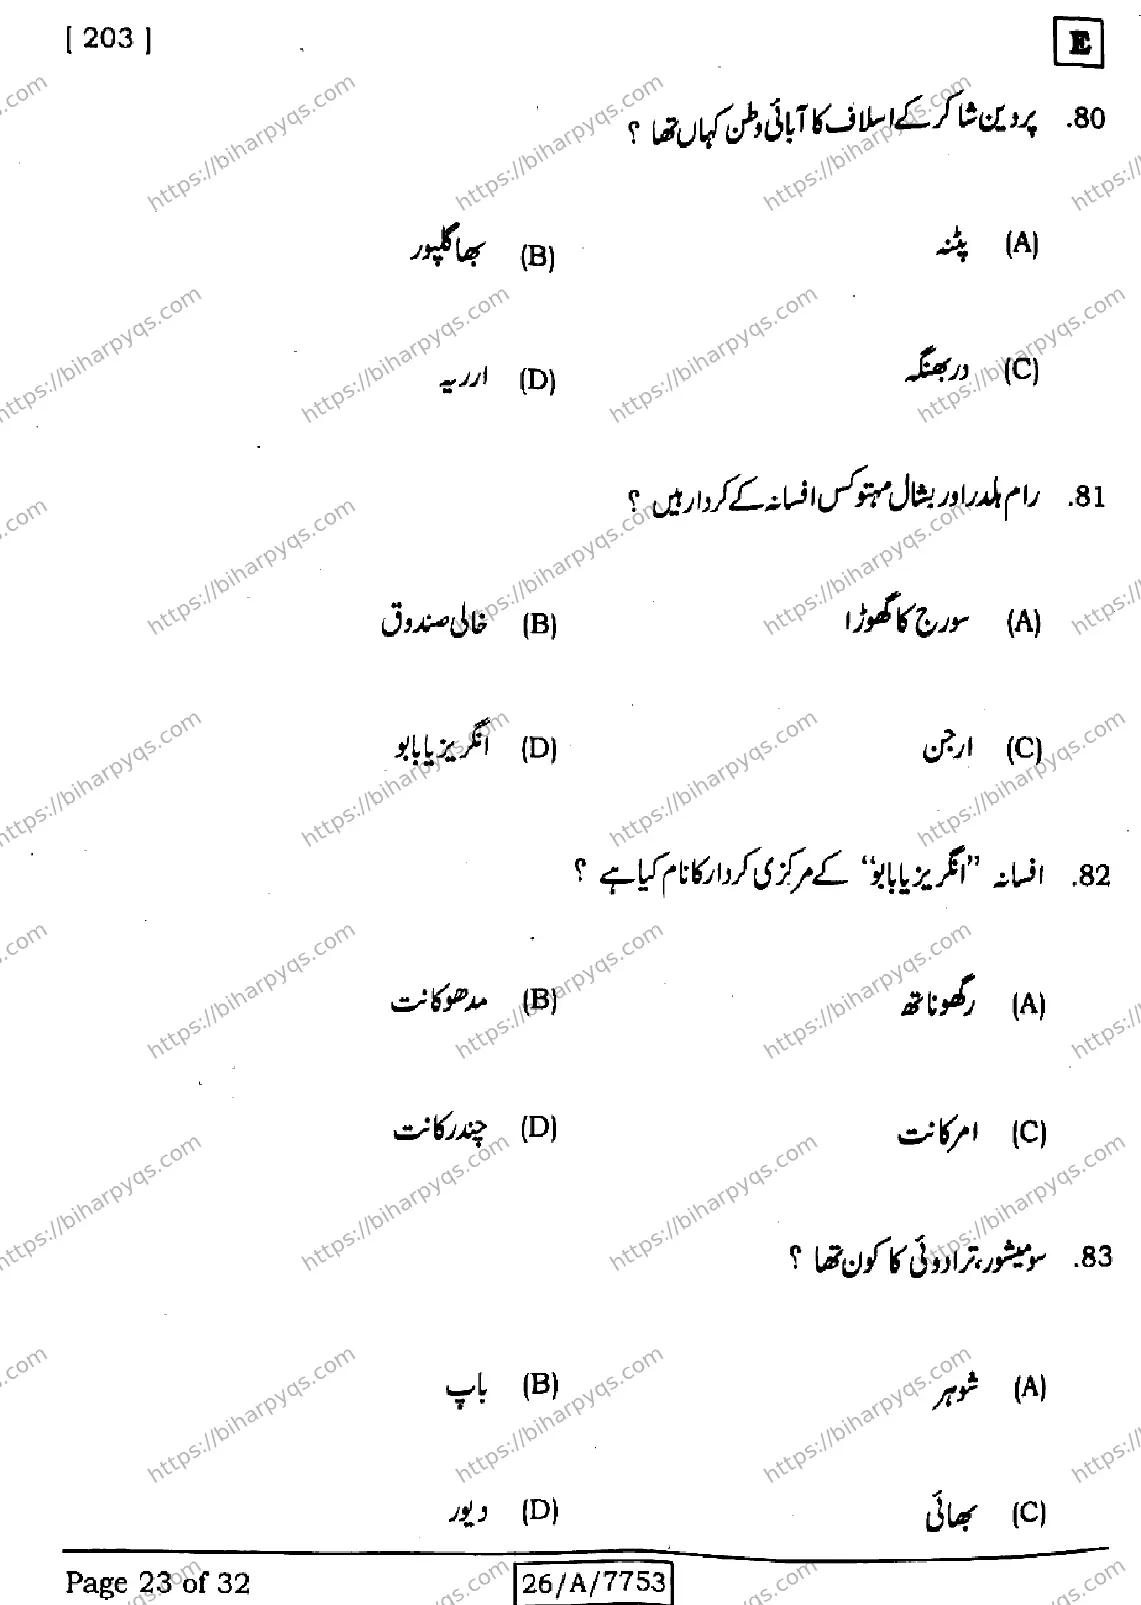 [ 203 ]
E
80. پروین شاکر کے اسلاف کا آبائی وطن کہاں تھا ؟
(A) پٹنہ (B) بھاگلپور
(C) دربھنگہ (D) ارریہ
81. رام ہلدر اور بشال مہتو کس افسانہ کے کردار ہیں ؟
(A) سورج کا گھوڑا (B) خالی صندوق
(C) ارجن (D) انگریزیا بابو
82. افسانہ ”انگریزیا بابو“ کے مرکزی کردار کا نام کیا ہے ؟
(A) رگھوناتھ (B) مدھوکانت
(C) امرکانت (D) چندرکانت
83. سومیشور، ترادوئی کا کون تھا ؟
(A) شوہر (B) باپ
(C) بھائی (D) دیور
Page 23 of 32
26/A/7753
https://biharpyqs.com